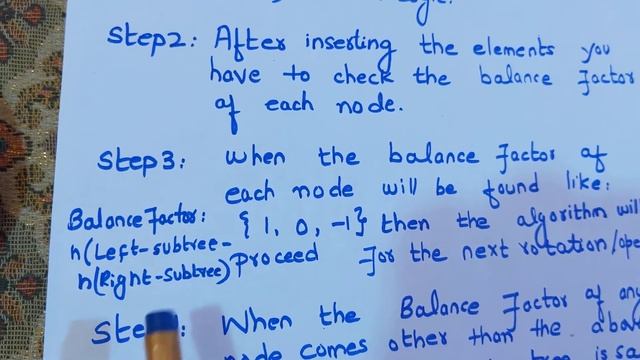 Step2: After inserting the elements you
have to check the balance Factor
of each node.
Step3: when the balance Factor of
each node will be found like:
Balance Factor: {1, 0, -1} then the algorithm will
h(Left-subtree- Proceed For the next rotation/ope
h(Right-subtree)
Ste : When the Balance Factor of any
node comes other than the abov